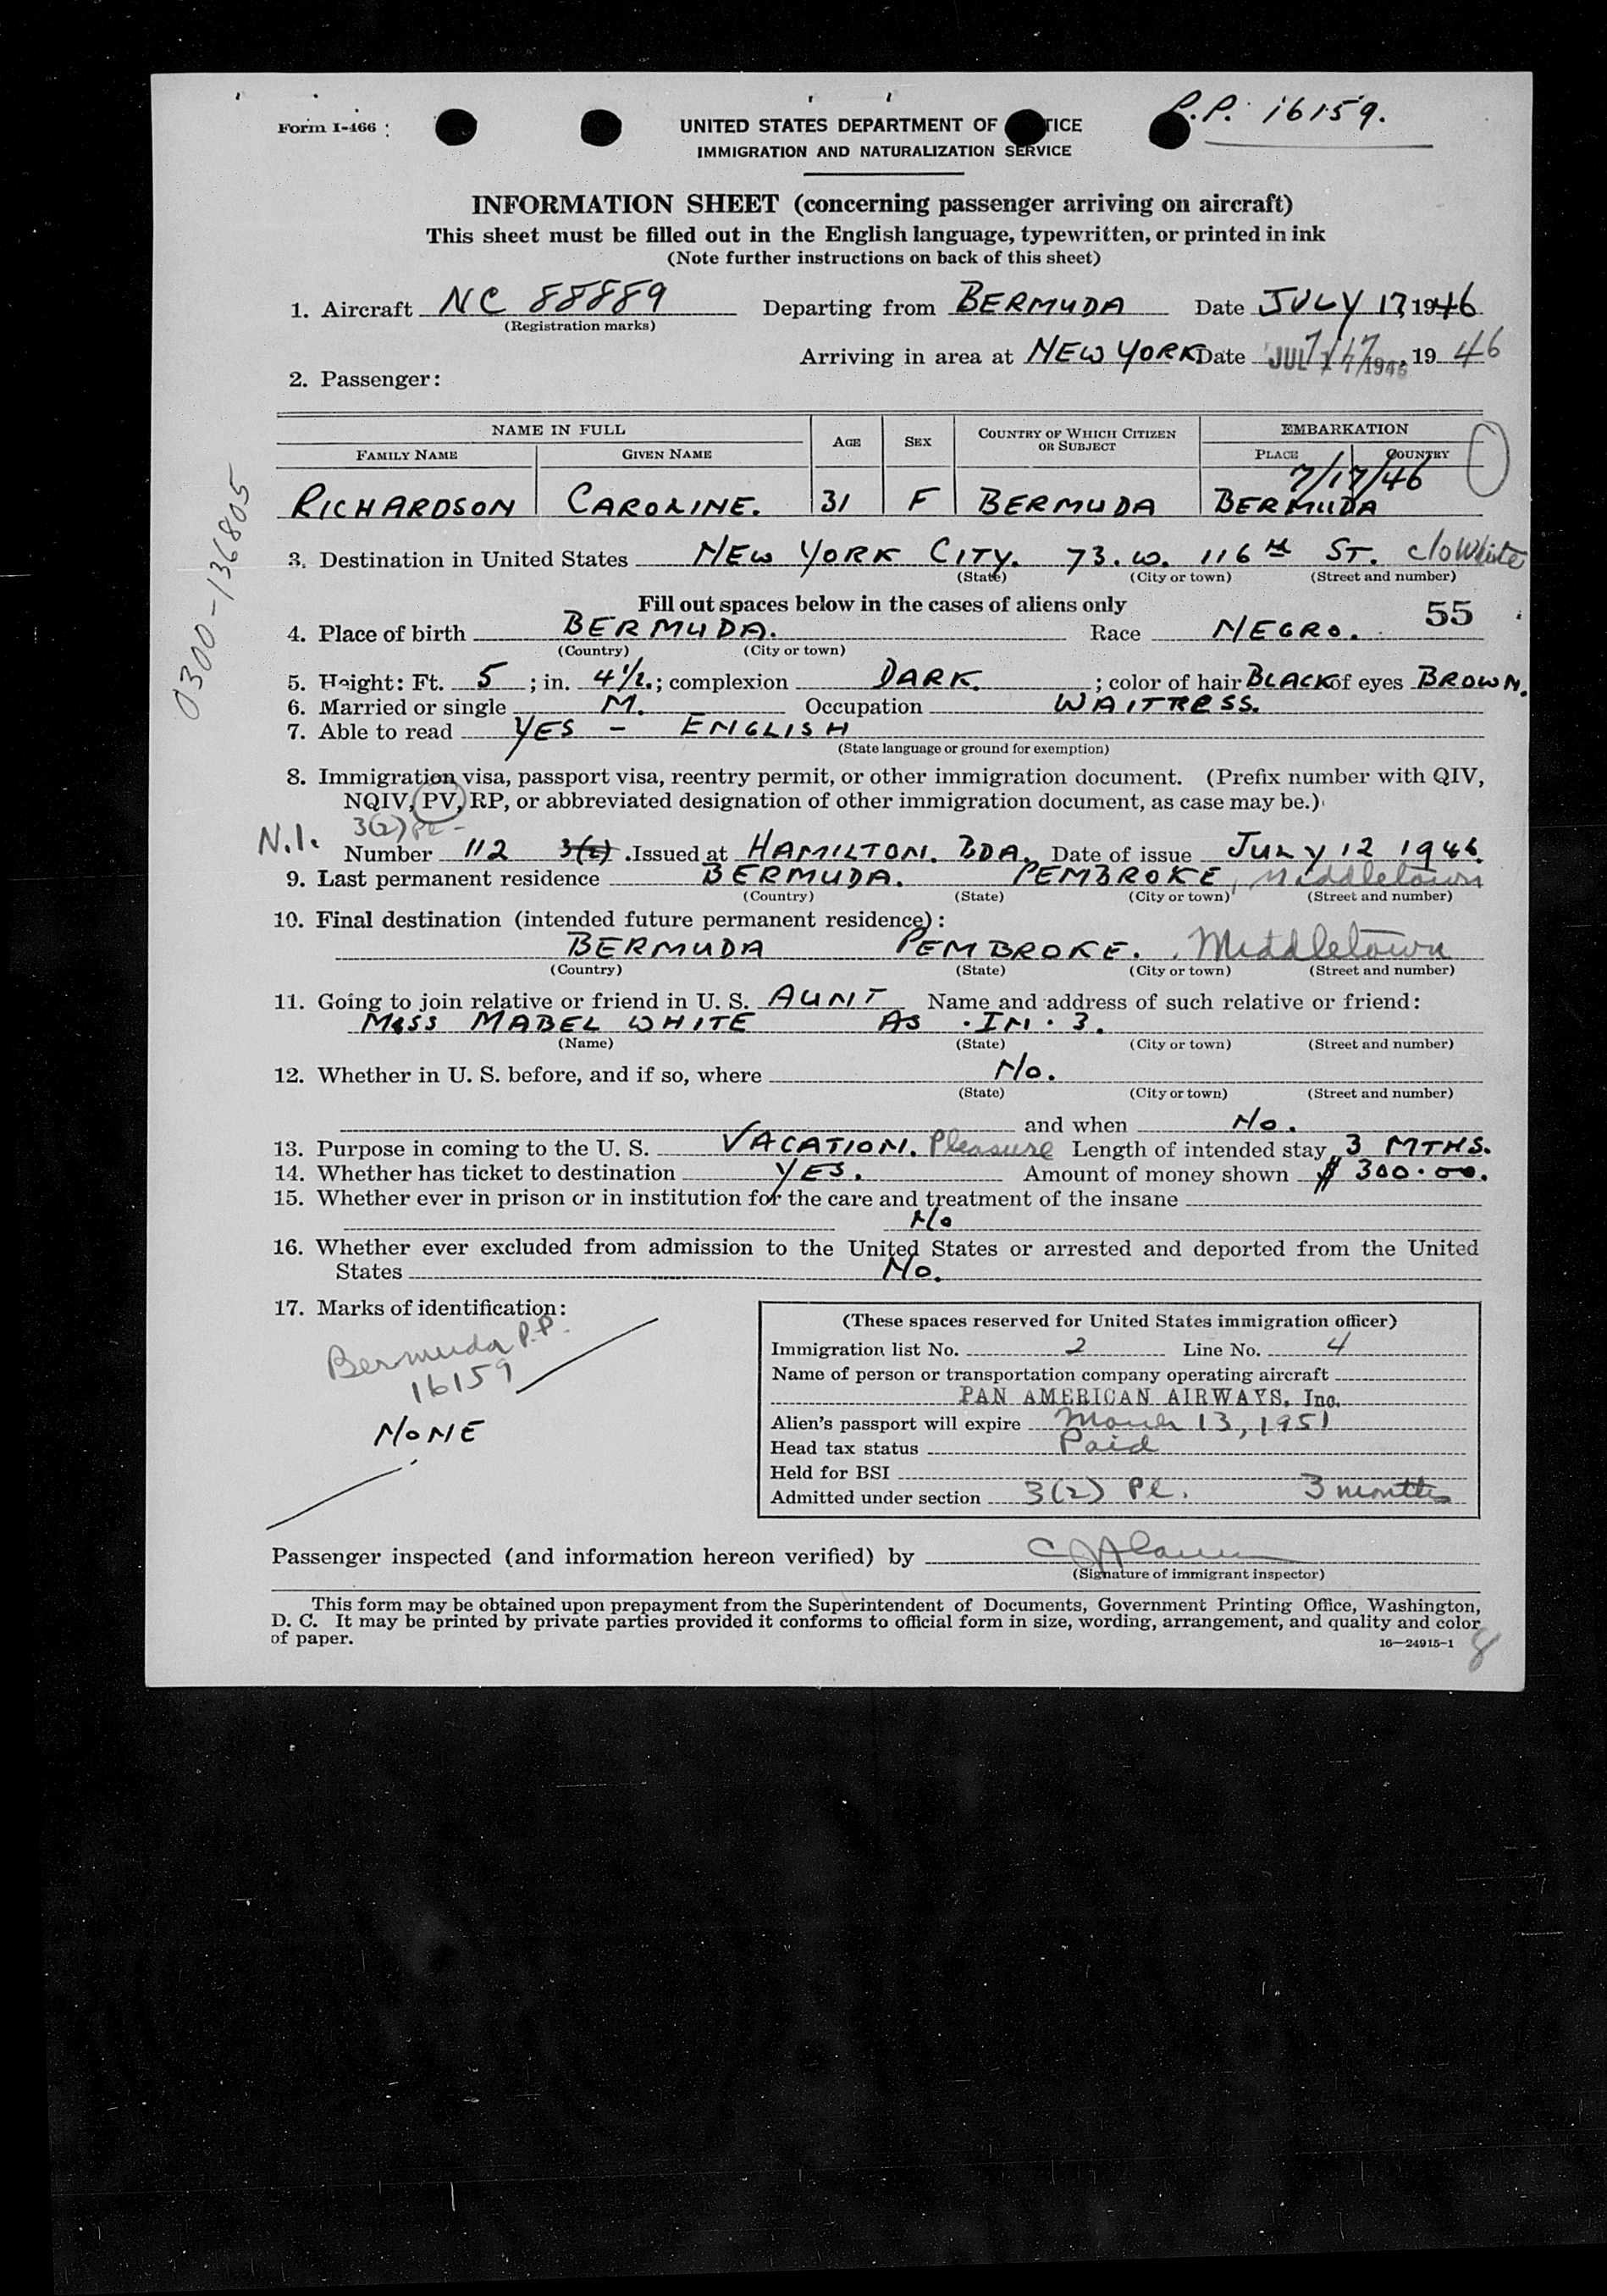 P.P. 16159.
Form I-466
UNITED STATES DEPARTMENT OF TICE
IMMIGRATION AND NATURALIZATION SERVICE
INFORMATION SHEET (concerning passenger arriving on aircraft)
This sheet must be filled out in the English language, typewritten, or printed in ink
(Note further instructions on back of this sheet)
1. Aircraft NC 88889 Departing from BERMUDA Date JULY 17, 1946
(Registration marks)
Arriving in area at NEW YORK Date JUL 17 1946 7/17, 19 46
2. Passenger:
NAME IN FULL AGE SEX COUNTRY OF WHICH CITIZEN OR SUBJECT EMBARKATION
FAMILY NAME GIVEN NAME PLACE COUNTRY
7/17/46
RICHARDSON CAROLINE. 31 F BERMUDA BERMUDA
0300-136805
3. Destination in United States NEW YORK CITY. 73. W. 116 th ST. c/o White
(State) (City or town) (Street and number)
Fill out spaces below in the cases of aliens only 55
4. Place of birth BERMUDA. Race NEGRO.
(Country) (City or town)
5. Height: Ft. 5; in. 4½.; complexion DARK.; color of hair BLACK of eyes BROWN.
6. Married or single M. Occupation WAITRESS.
7. Able to read YES - ENGLISH
(State language or ground for exemption)
8. Immigration visa, passport visa, reentry permit, or other immigration document. (Prefix number with QIV,
NQIV, PV, RP, or abbreviated designation of other immigration document, as case may be.)
3(2) Pl -
N.I. Number 112 3(2). Issued at HAMILTON. BDA. Date of issue JULY 12 1946.
9. Last permanent residence BERMUDA. PEMBROKE, Middletown
(Country) (State) (City or town) (Street and number)
10. Final destination (intended future permanent residence):
BERMUDA PEMBROKE. Middletown
(Country) (State) (City or town) (Street and number)
11. Going to join relative or friend in U. S. AUNT Name and address of such relative or friend:
MISS MABEL WHITE AS . IN . 3.
(Name) (State) (City or town) (Street and number)
12. Whether in U. S. before, and if so, where No.
(State) (City or town) (Street and number)
and when No.
13. Purpose in coming to the U. S. VACATION. Pleasure Length of intended stay 3 MTHS.
14. Whether has ticket to destination YES. Amount of money shown $ 300.00.
15. Whether ever in prison or in institution for the care and treatment of the insane
No
16. Whether ever excluded from admission to the United States or arrested and deported from the United
States No.
17. Marks of identification:
Bermuda P.P.
16159
NONE
(These spaces reserved for United States immigration officer)
Immigration list No. 2 Line No. 4
Name of person or transportation company operating aircraft
PAN AMERICAN AIRWAYS, Inc.
Alien's passport will expire March 13, 1951
Head tax status Paid
Held for BSI
Admitted under section 3(2) Pl. 3 months
Passenger inspected (and information hereon verified) by
(Signature of immigrant inspector)
This form may be obtained upon prepayment from the Superintendent of Documents, Government Printing Office, Washington,
D. C. It may be printed by private parties provided it conforms to official form in size, wording, arrangement, and quality and color
of paper.
16—24915-1
8